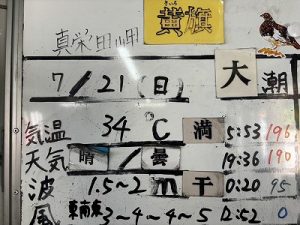 真栄田岬
きいろ
黄旗
7/21(日) 大潮
気温 34℃ 満 5:53 196
天気 晴/曇 19:36 190
波 1.5~2m 干 0:20 95
風 東南東 3~4~4~5 12:52 0